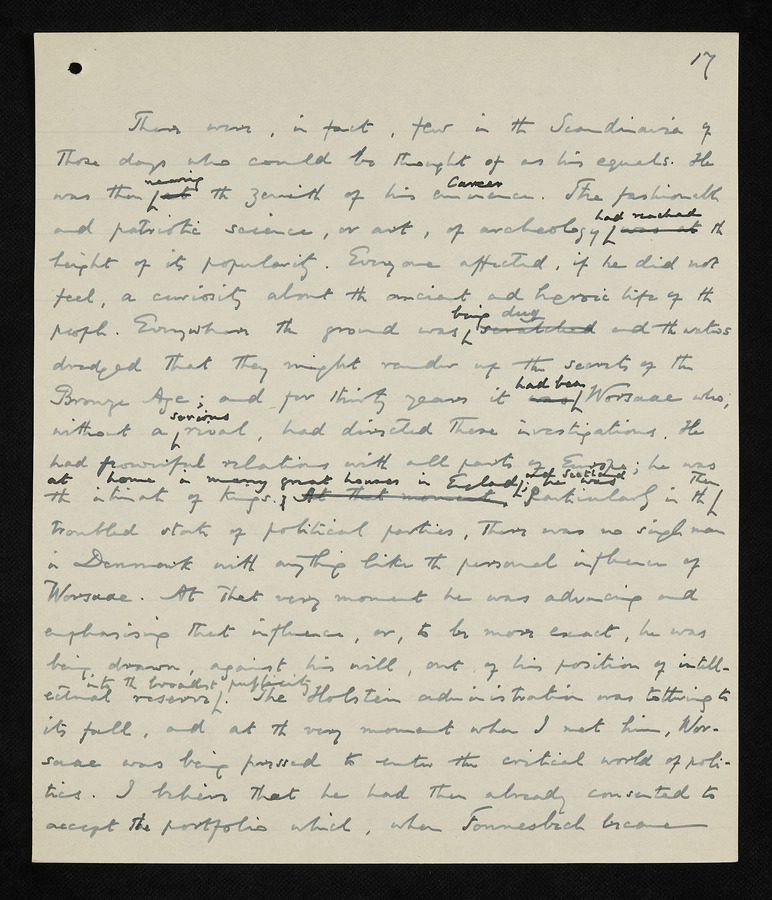 17
There were, in fact, few in the Scandinavia of
those days who could be thought of as his equals. He
nearing Career
was then at the zenith of his eminence. The fashionable
had reached
and patriotic science, or art, of archeology was at the
height of its popularity. Everyone affected, if he did not
feel, a curiosity about the ancient and heroic life of the
being dug
people. Everywhere the ground was scratched and the waters
dredged that they might render up the secrets of the
had been
Bronze Age; and for thirty years it was Worsaae who,
serious
without a rival, had directed these investigations. He
had powerful relations with all parts of Europe; he was
at home in many great houses in England and of Scotland; he was then
the intimate of Kings. At that moment, Particularly in the
troubled state of political parties, there was no single man
in Denmark with anything like the personal influence of
Worsaae. At that very moment he was advancing and
emphasising that influence, or, to be more exact, he was
being drawn, against his will, out of his position of intell-
into the broadest publicity
ectual reserve. The Holstein administration was tottering to
its fall, and at the very moment when I met him, Wor-
saae was being pressed to enter the critical world of poli-
tics. I believe that he had then already consented to
accept the portfolio which, when Fonnesbech became